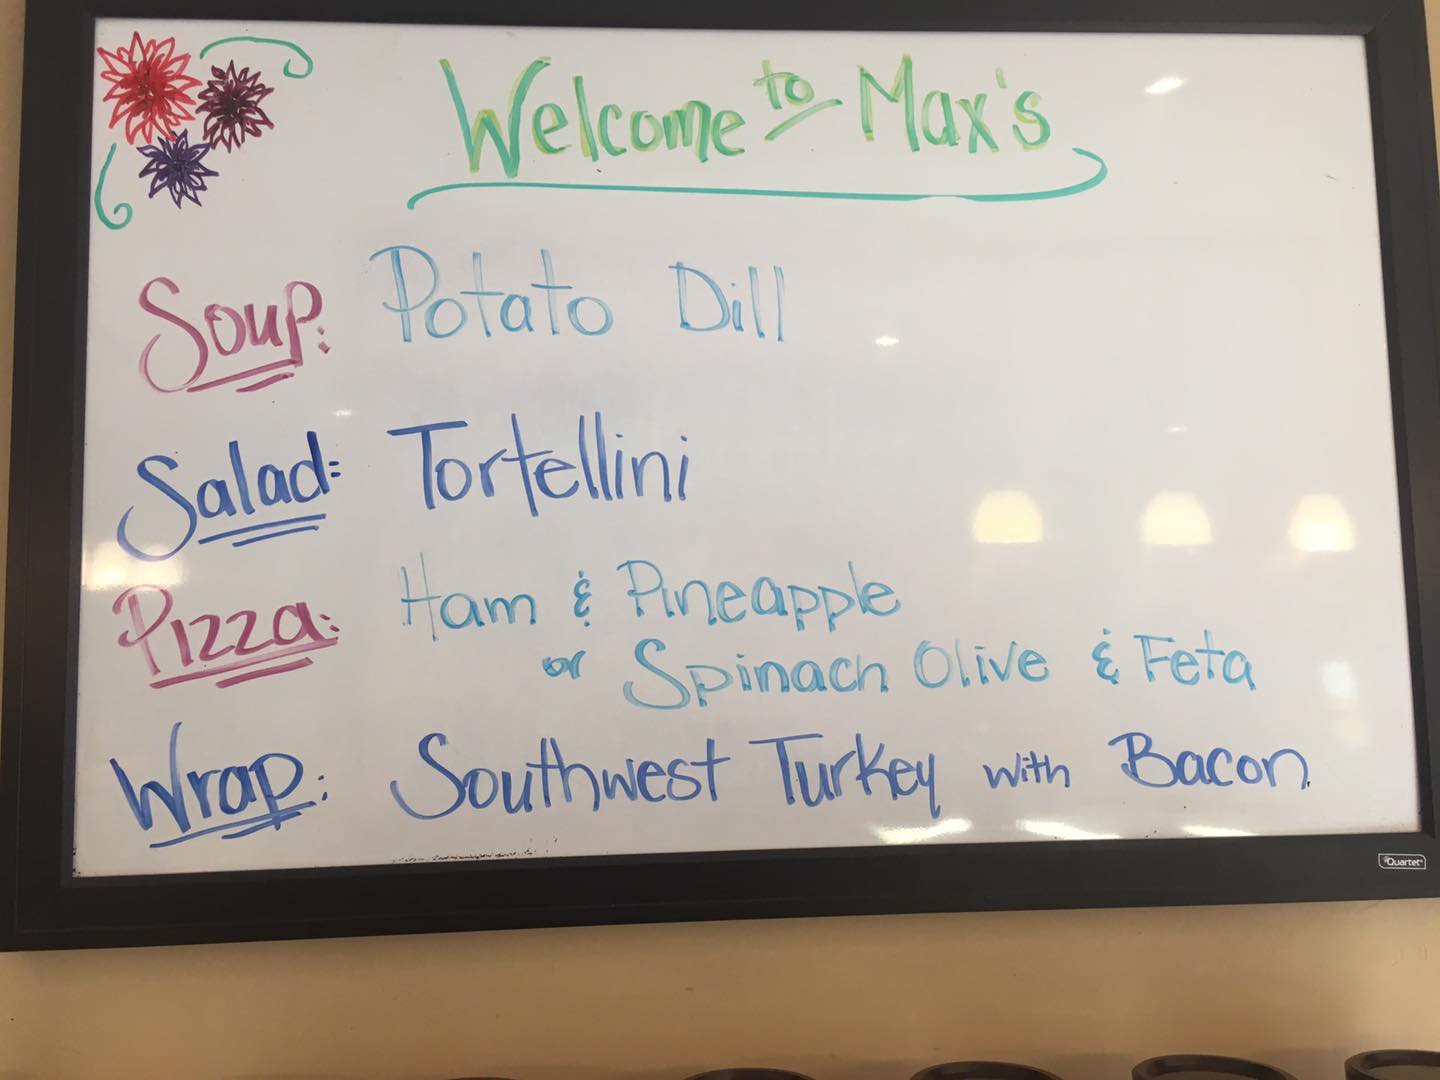 Welcome to Max's
Soup: Potato Dill
Salad: Tortellini
Pizza: Ham & Pineapple
or Spinach Olive & Feta
Wrap: Southwest Turkey with Bacon
Quartet